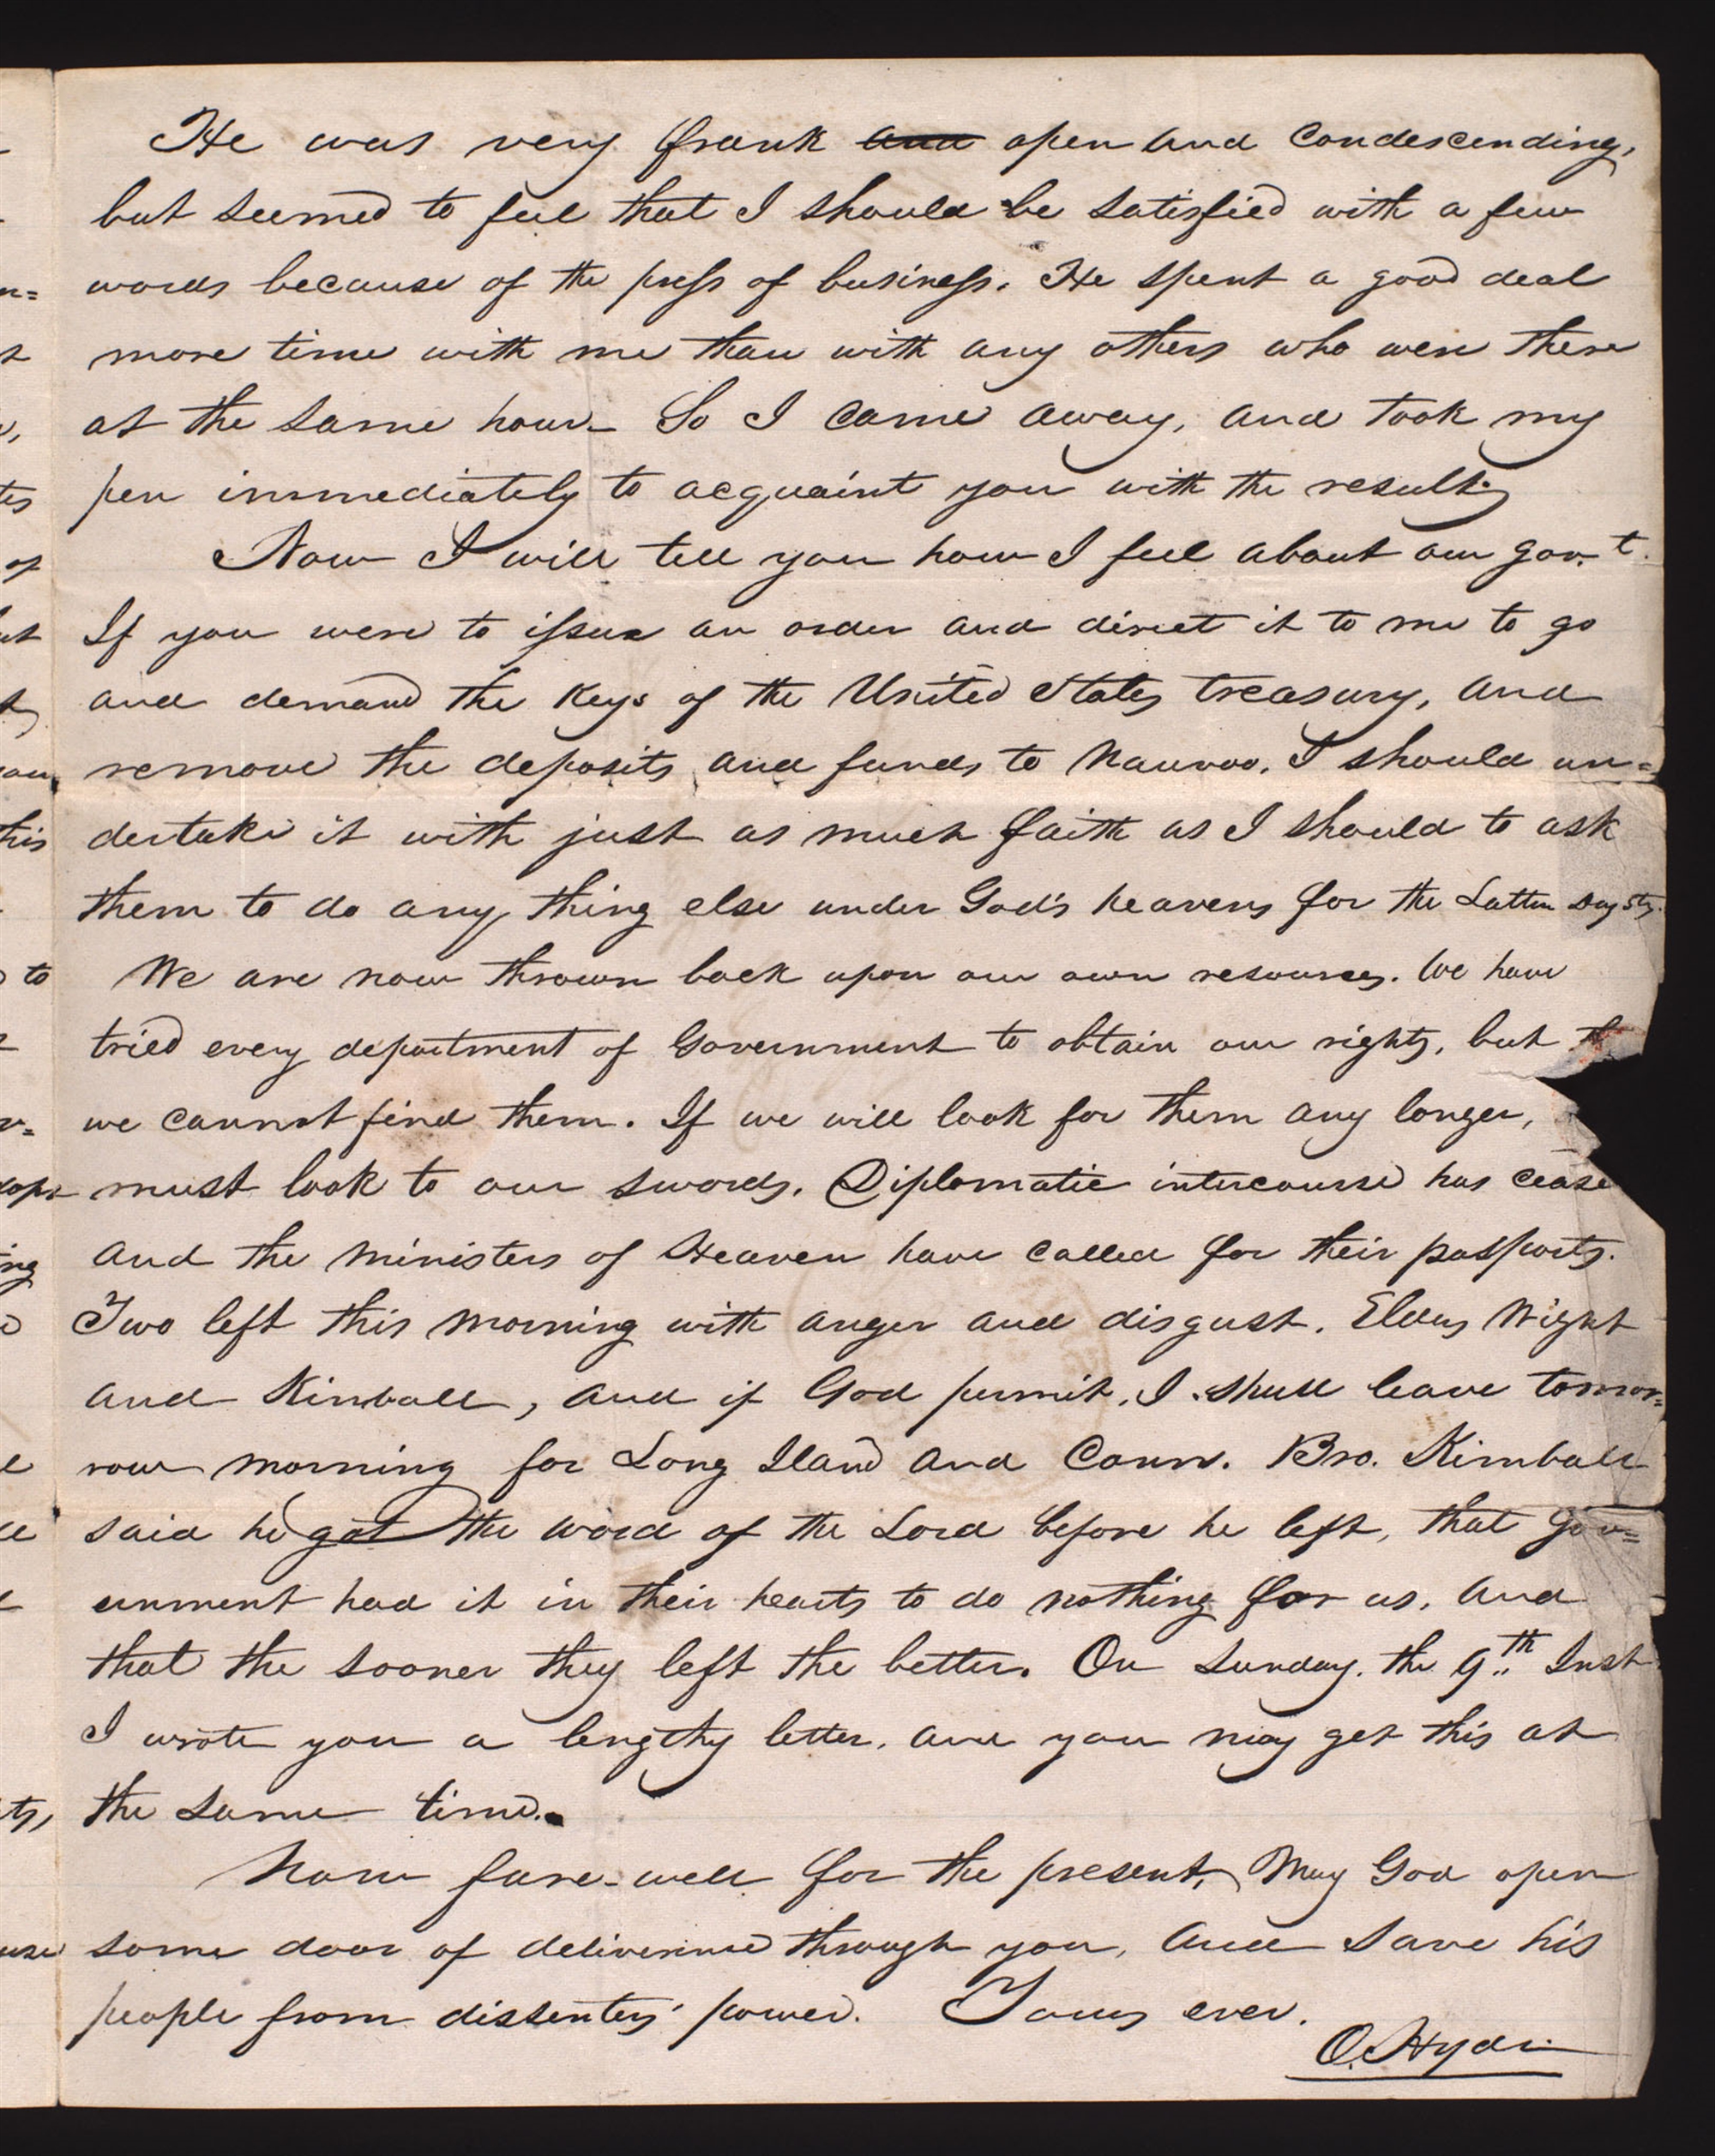 He was very frank and open and condescending,
but seemed to feel that I should be satisfied with a few
words because of the press of business. He spent a good deal
more time with me than with any others who were there
at the same hour– So I came away, and took my
pen immediately to acquaint you with the result.
Now I will tell you how I feel about our gov.t
If you were to issue an order and direct it to me to go
and demand the keys of the United States treasury, and
remove the deposits and funds to Nauvoo, I should un=
dertake it with just as much faith as I should to ask
them to do any thing else under God's heavens for the Latter Day Sts.
We are now thrown back upon our own resources. We have
tried every department of Government to obtain our rights, but
we cannot find them. If we will look for them any longer,
must look to our swords. Diplomatic intercourse has cease
and the ministers of Heaven have called for their passports.
Two left this morning with anger and disgust. Elders Wight
and Kimball, and if God permit, I shall leave tomor=
row morning for Long Iland and Conn. Bro. Kimball
said he got the word of the Lord before he left, that gov=
ernment had it in their hearts to do nothing for us, and
that the sooner they left the better. On Sunday, the 9th Inst
I wrote you a lengthy letter, and you may get this at
the same time.
Now fare-well for the present, May God open
some door of deliverence through you, and save his
people from dissenters' power. Yours ever.
O. Hyde